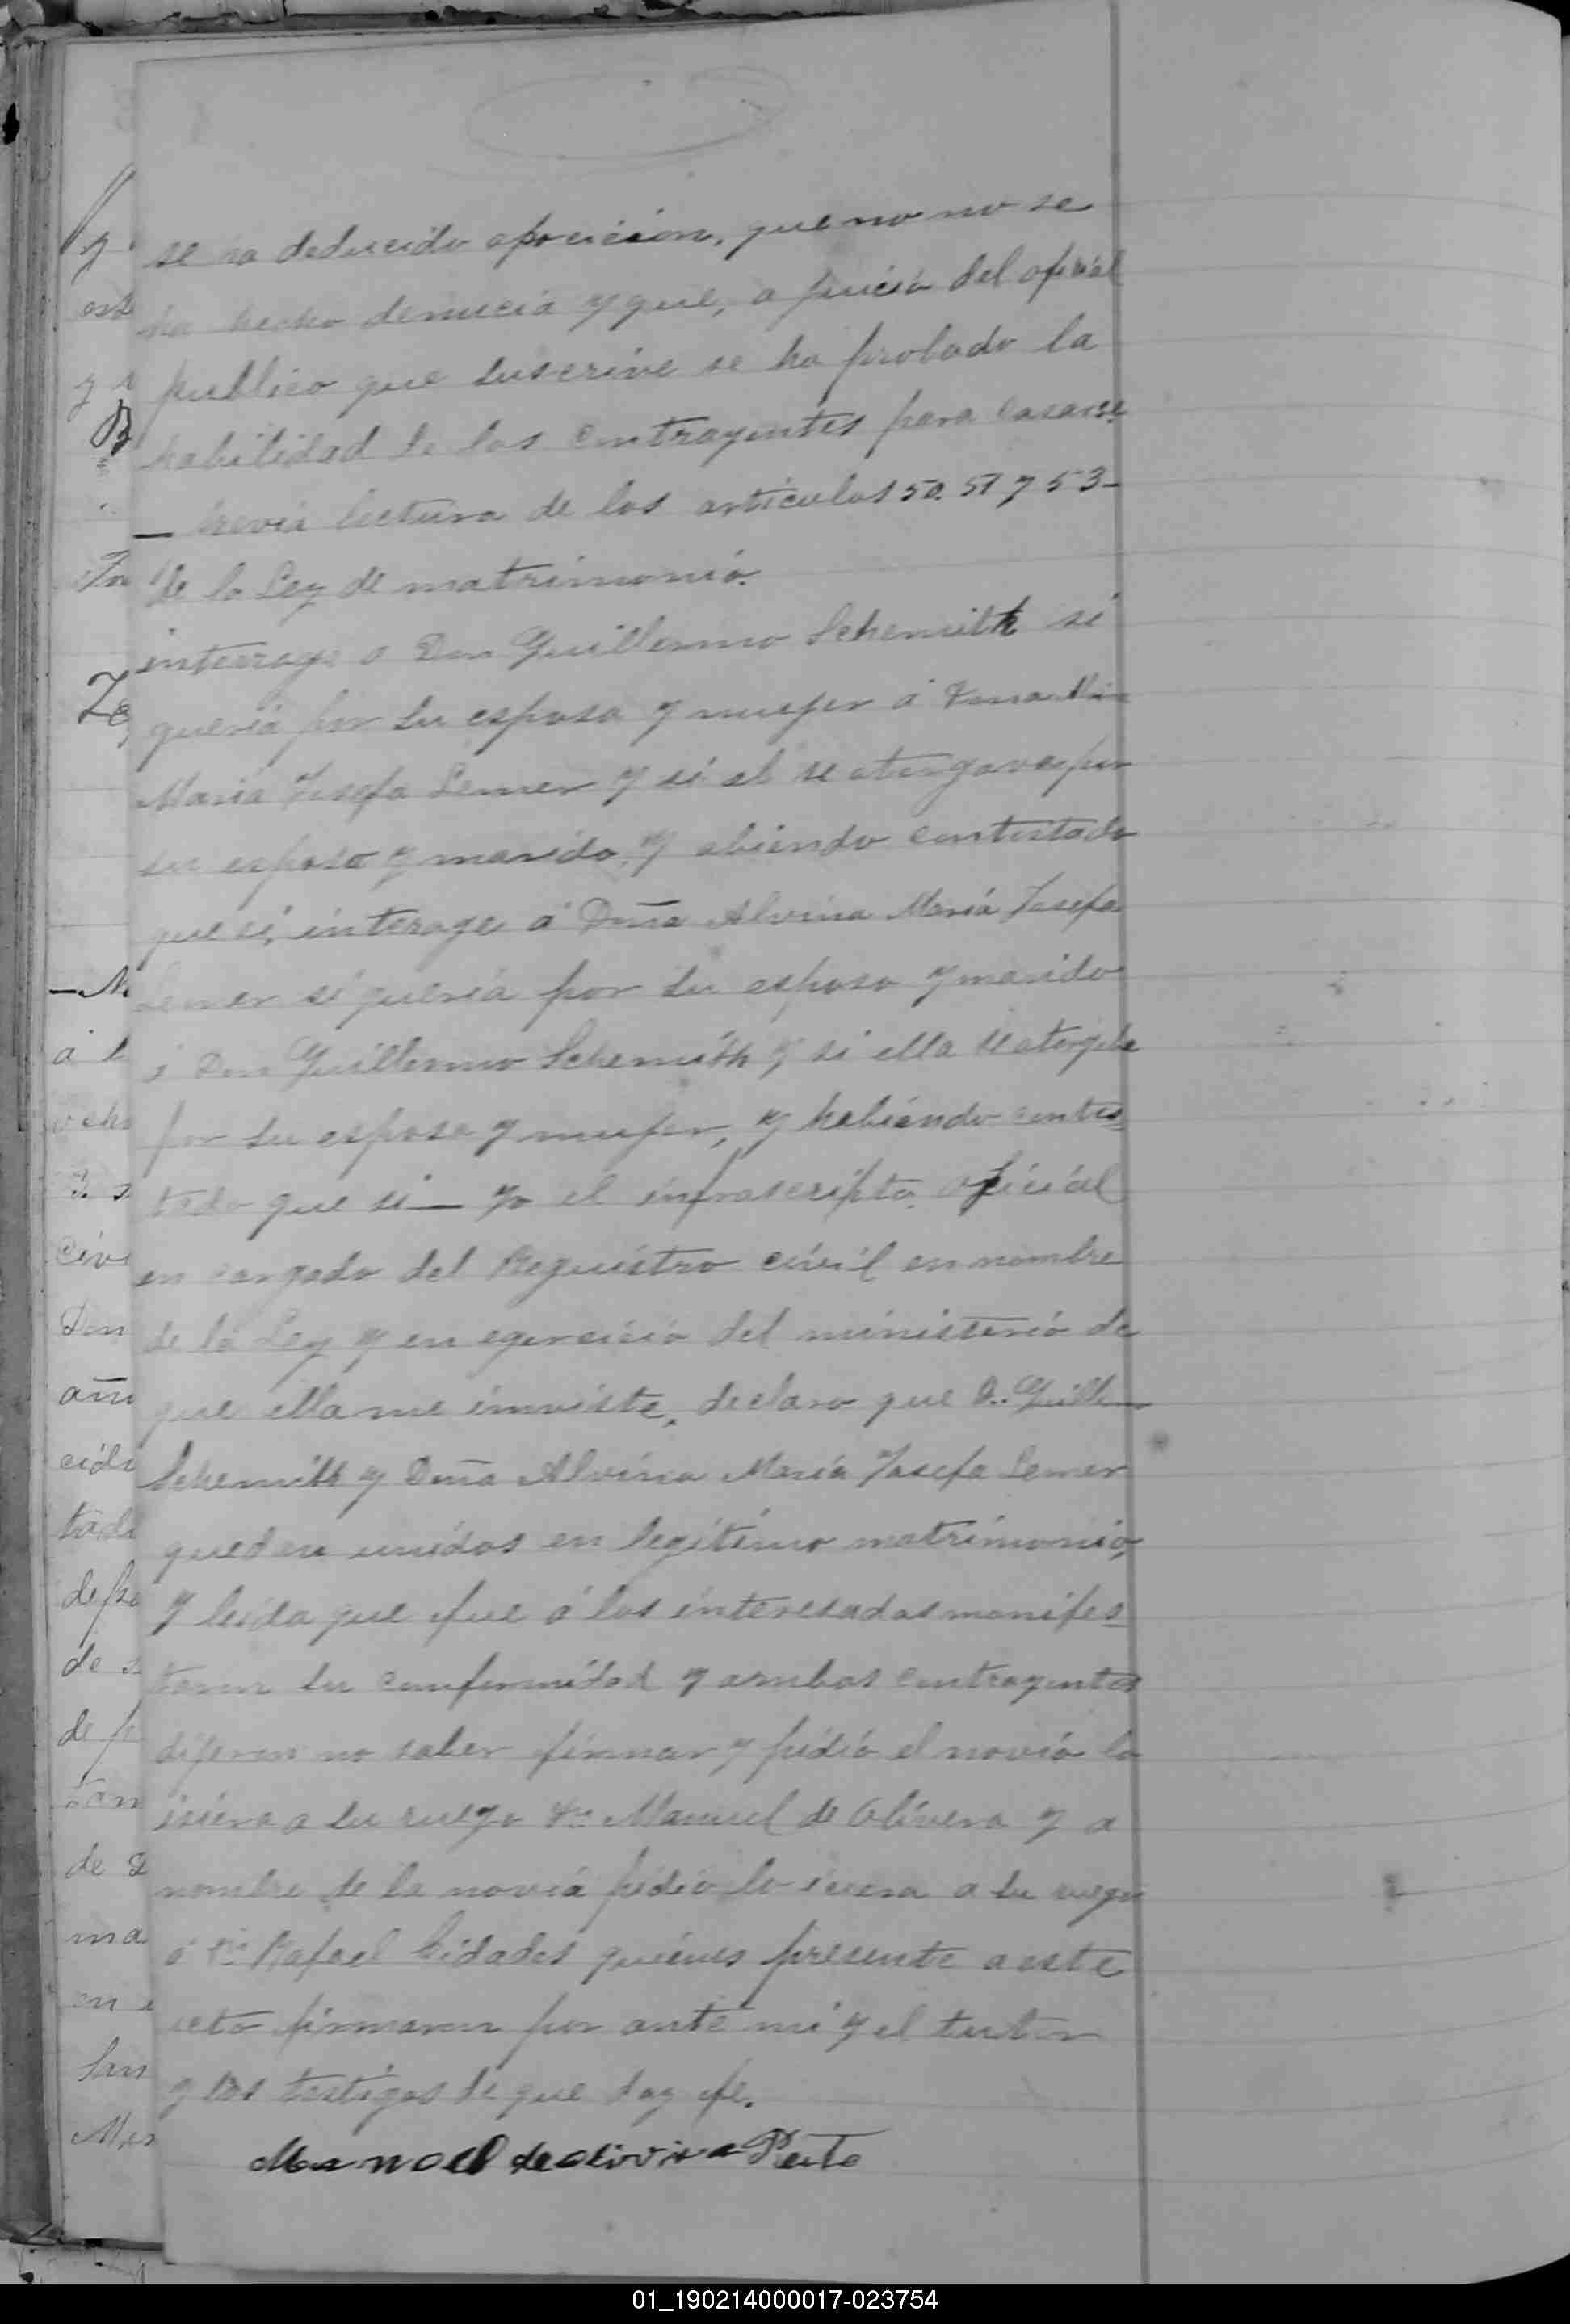 se ha deducido oposicion, que no no se
ha hecho denuncia y que, a juicio del oficial
publico que suscrive se ha probado la
habilidad de los contrayentes para casarse
— previa lectura de los articulos 50. 51 y 53 —
de la Ley de matrimonio.
interroge a Don Guillermo Schemith si
queria por su esposa y mujer á
Maria Josefa Lemer y si el se atorgava por
su esposo y marido, y abiendo contestado
que si, interoge á Doña Alvina María Josefa
Lemer si queria por su esposo y marido
á Don Guillermo Schemith y si ella se atorgaba
por su esposa y mujer, y habiendo contes
tado que si — yo el infrascripto oficial
en cargado del Reguistro civil en nombre
de la Ley y en egercicio del ministerio de
que ella me inviste, declaro que D.
Schemith y Doña Alvina María Josefa Lemer
quedan unidos en legítimo matrimonio,
y leida que fue á los interesados manifes
taron su conformidad y ambos contrayentes
dijeron no saber firmar y pidió el novio lo
isiera a su ruego Dn Manuel de Olivera y a
nombre de la novia pidio lo isiera a su ruego
á Dn Rafael Cidades quiénes presente a este
acto firmaron por ante mi y el tutor
y los testigos de que doy fe.
Manoel de olivira Peito
01_190214000017-023754